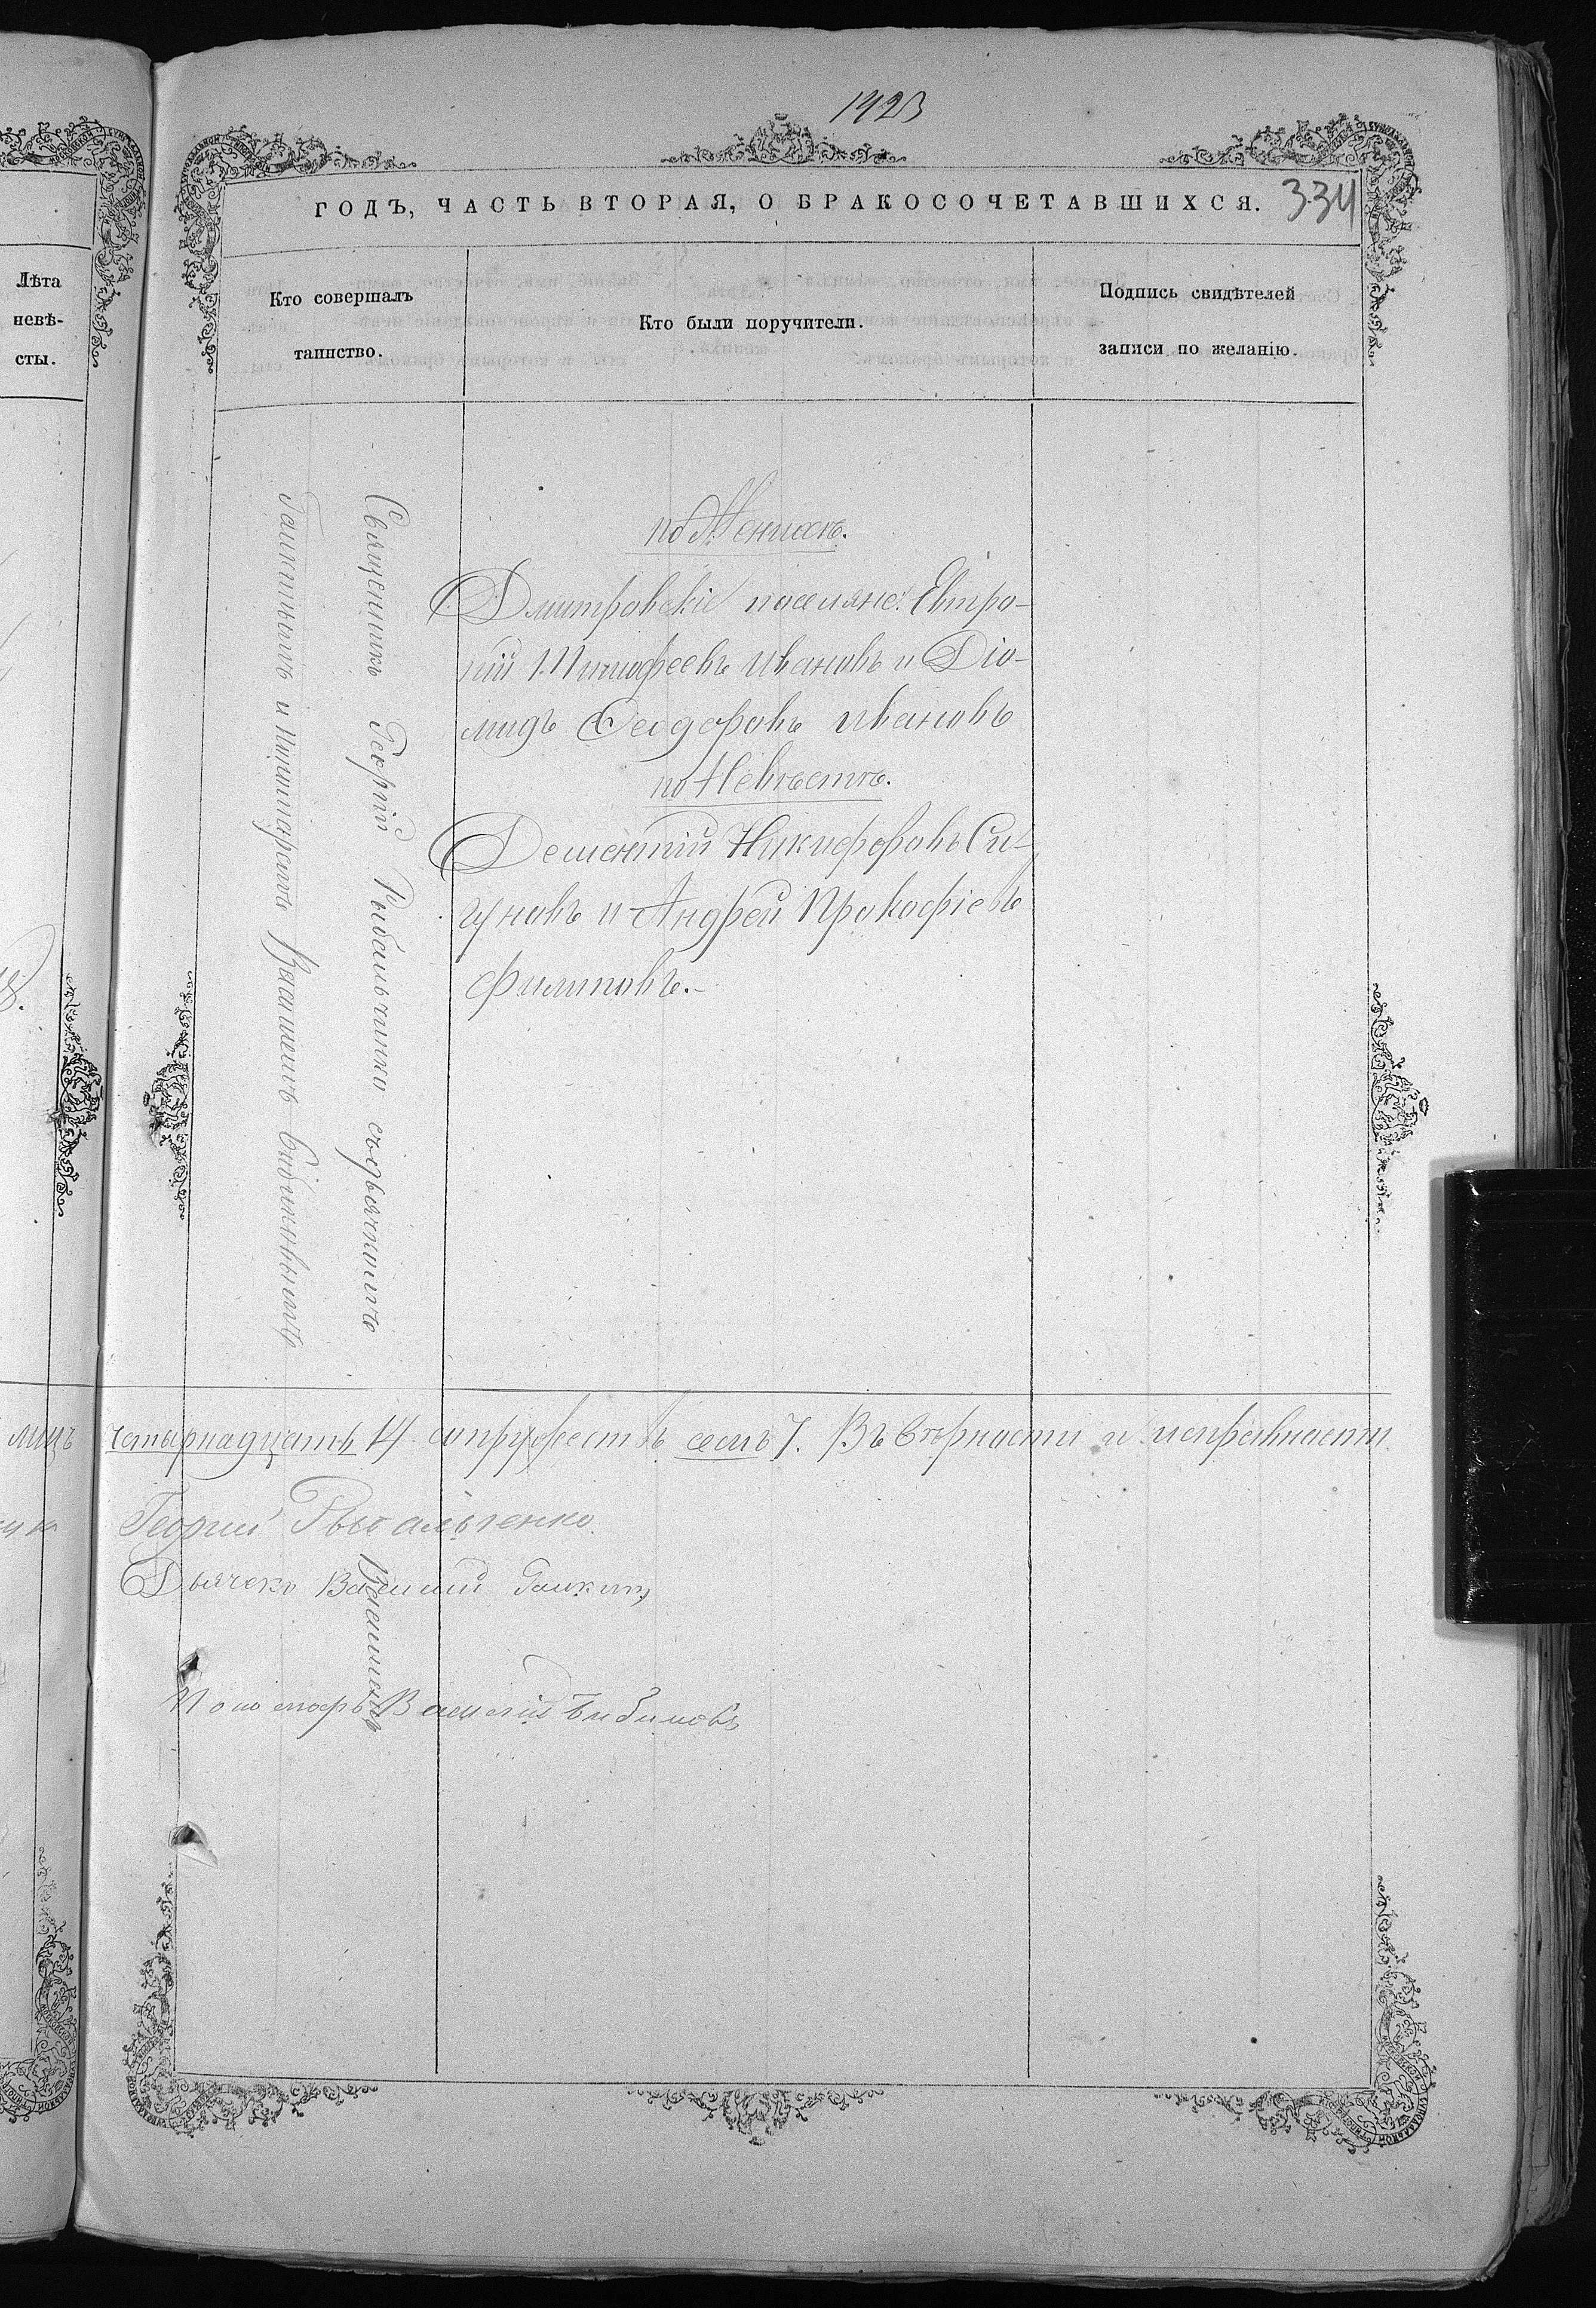 1423
334
ГОДЪ, ЧАСТЬ ВТОРАЯ, О БРАКОСОЧЕТАВШИХСЯ.
Лѣта
невѣ-
сты.
Кто совершалъ
таинство.
Кто были поручители.
Подпись свидѣтелей
записи по желанію.
Священникъ Георгій Рыбальченко съ дьячкомъ
и Пономаремъ Василіемъ Бибиковымъ
по Женихѣ.
Дмитровскіе поселяне: Евтро-
пій Тимофеевъ Ивановъ и Діо-
мидъ Ѳеодоровъ Ивановъ
по Невѣстѣ.
Дементій Никифоровъ Си-
гуновъ и Андрей Прокофіевъ
Филиповъ.-
лицъ четырнадцать 14 супружествъ семъ 7. Въ вѣрности и исправности
Георгій Рыбальченко.
Дьячекъ Василій
Пономарь Василій Бибиковъ